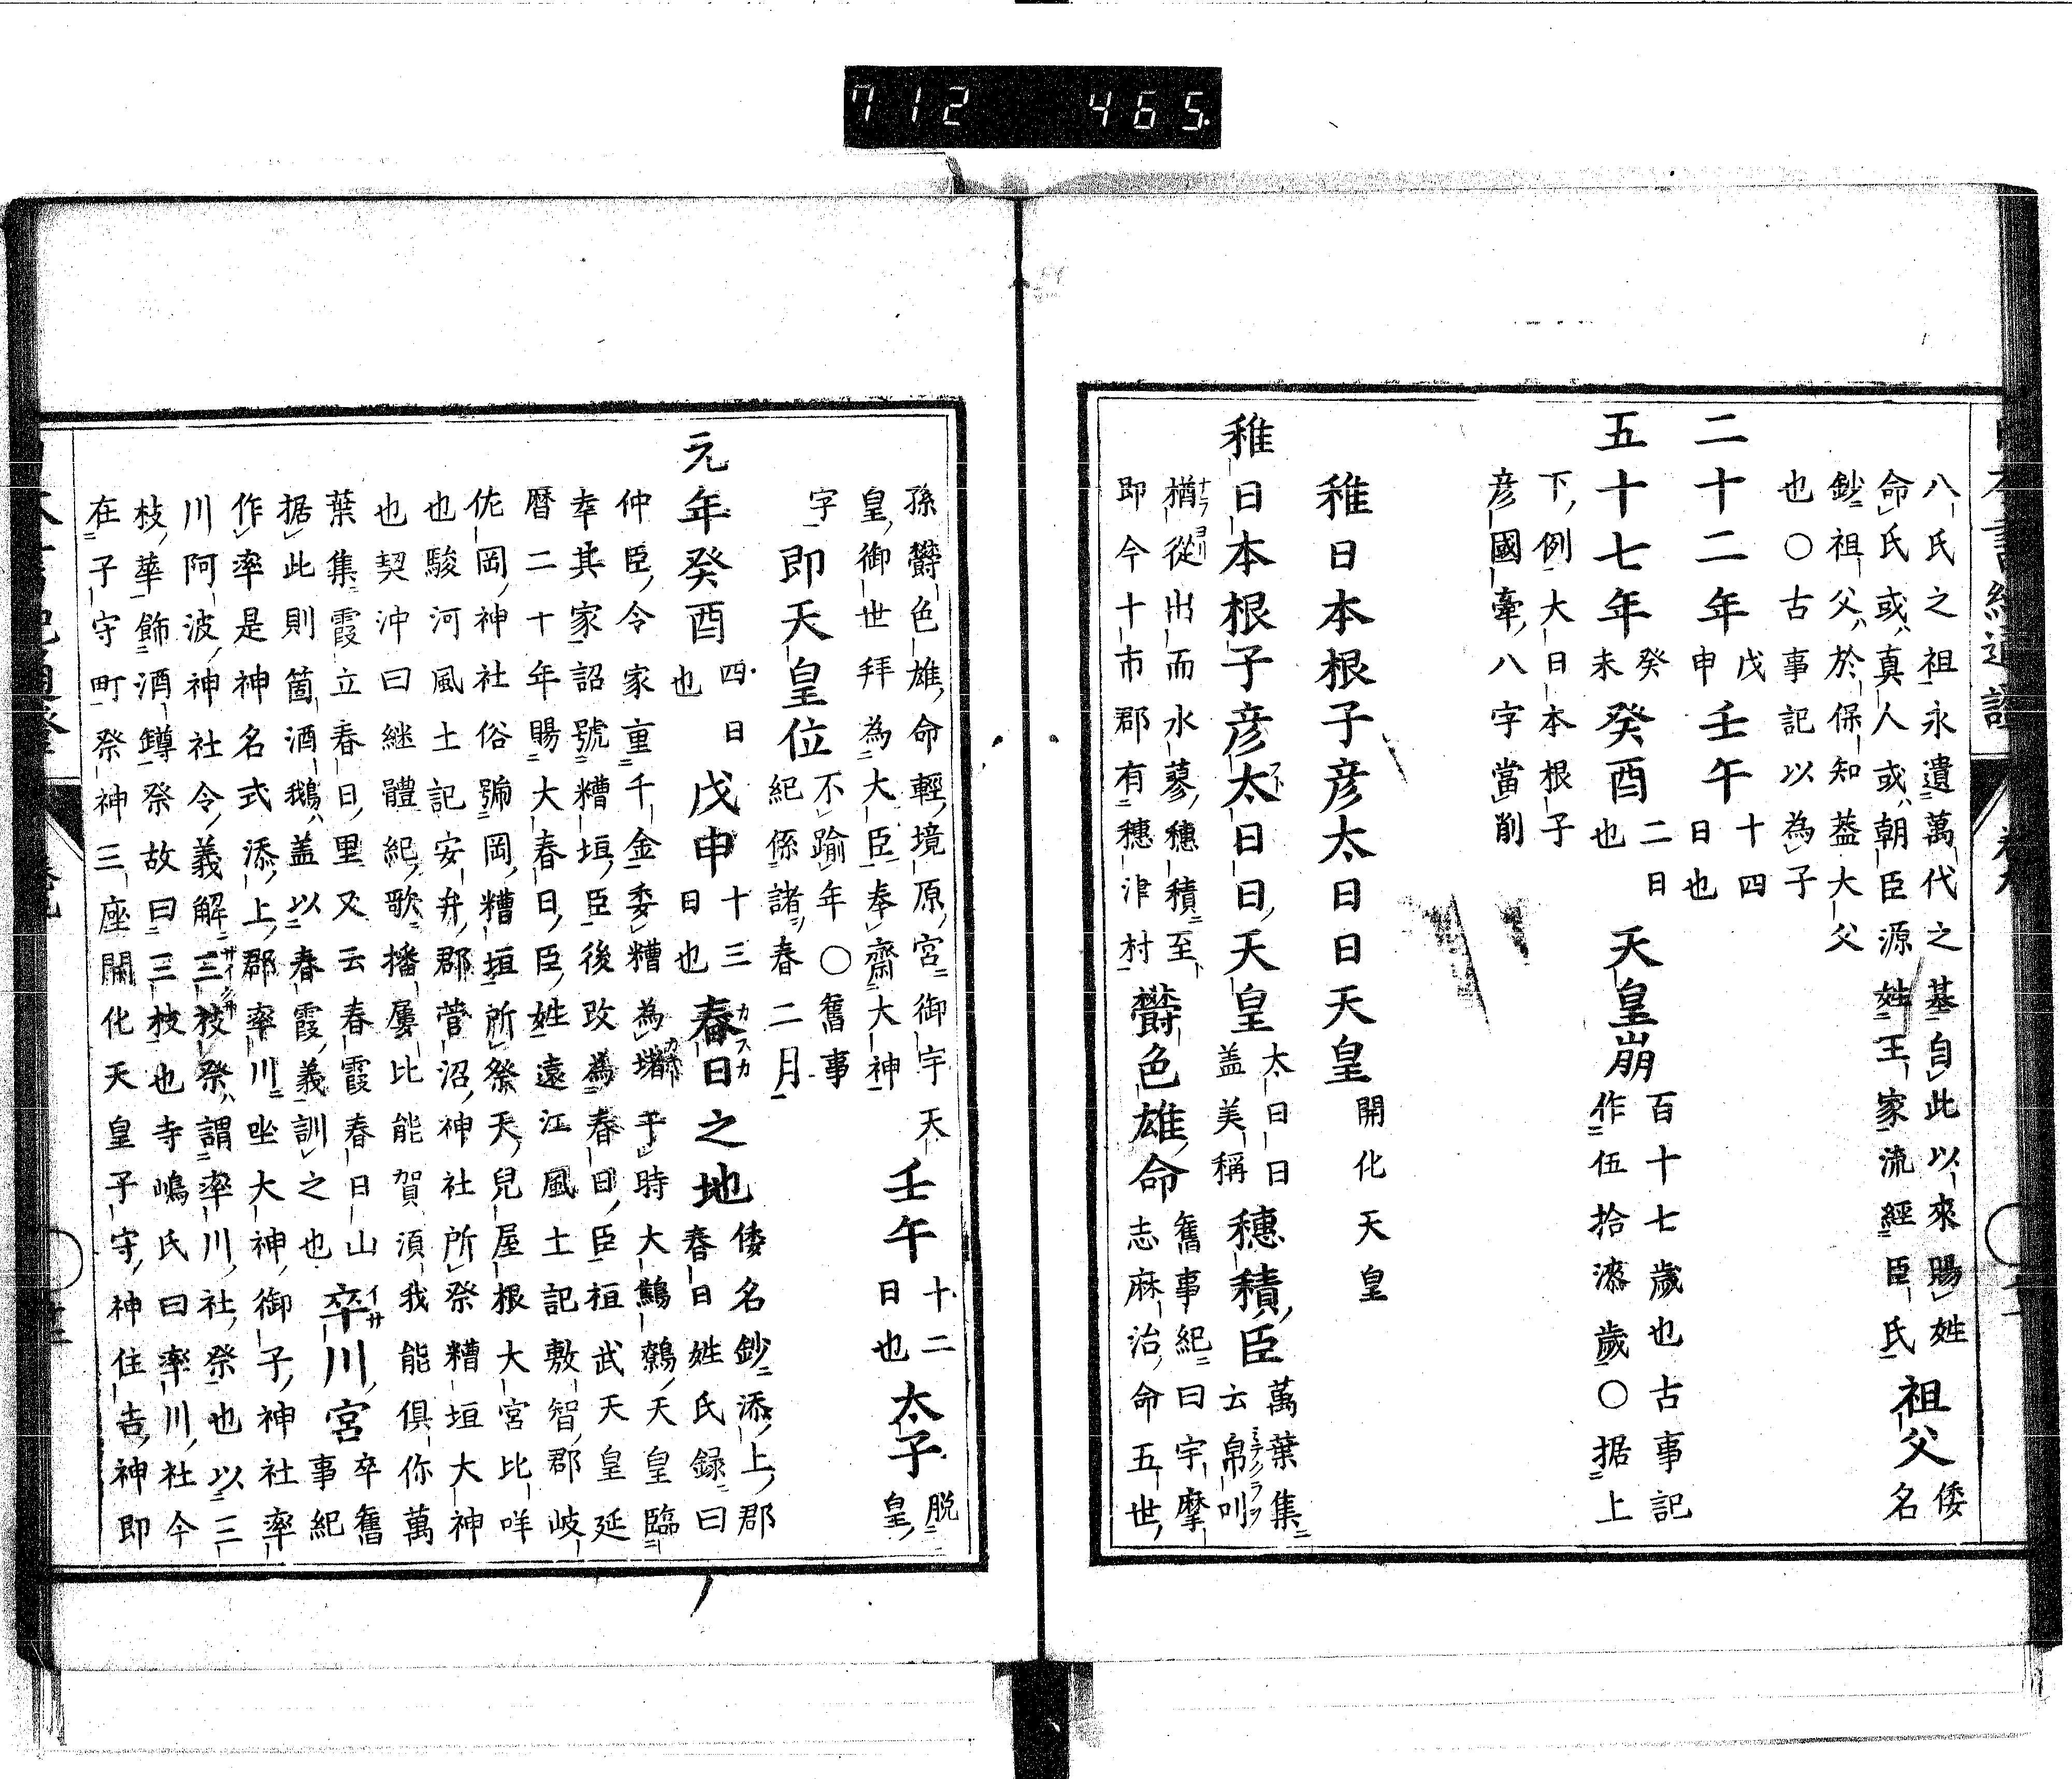 712 465
八氏之祖永遺萬代之基自此以來賜姓
命氏或真人或朝臣源姓王家流經臣氏
祖父
倭
名
鈔祖父於保知蓋大父
也○古事記以為子
二十二年
戊
申
壬午
十四
日也
五十七年
癸
未
癸酉
二日
也
天皇崩
百十七歲也古事記
作伍拾漆歲○据上
下例大日本根子
彦國牽八字當削
稚日本根子彦太日日天皇
開化天皇
稚日本根子彦太日日天皇
太日日
盖美稱
穗積臣
萬葉集
云帛叫
楢從出而水蓼穗積至
即今十市郡有穗津村
欝色雄命
舊事紀曰宇摩
志麻治命五世
孫欝色雄命輕境原宮御宇天
皇御世拜為大臣奉齋大神
壬午
十二
日也
太子
脱
皇
字
即天皇位
不踰年○舊事
紀係諸春二月
元年癸酉
四日
也
戊申
十三
日也
春日之地
倭名鈔添上郡
春日姓氏録曰
仲臣令家重千金委糟為堵于時大鷦鷯天皇臨
幸其家詔號糟垣臣後改為春日臣桓武天皇延
暦二十年賜大春日臣姓遠江風土記敷智郡岐
佐岡神社俗號岡糟垣所祭天兒屋根大宮比咩
也駿河風土記安弁郡菅沼神社所祭糟垣大神
也契沖曰継體紀歌播屢比能賀須我能倶你萬
葉集霞立春日里又云春霞春日山
据此則箇酒鵝盖以春霞義訓之也
卒川宮
卒舊
事紀
作率是神名式添上郡率川坐大神御子神社率
川阿波神社令義解三枝祭謂率川社祭也以三
枝華飾酒罇祭故曰三枝也寺嶋氏曰率川社今
在子守町祭神三座開化天皇子守神住吉神即